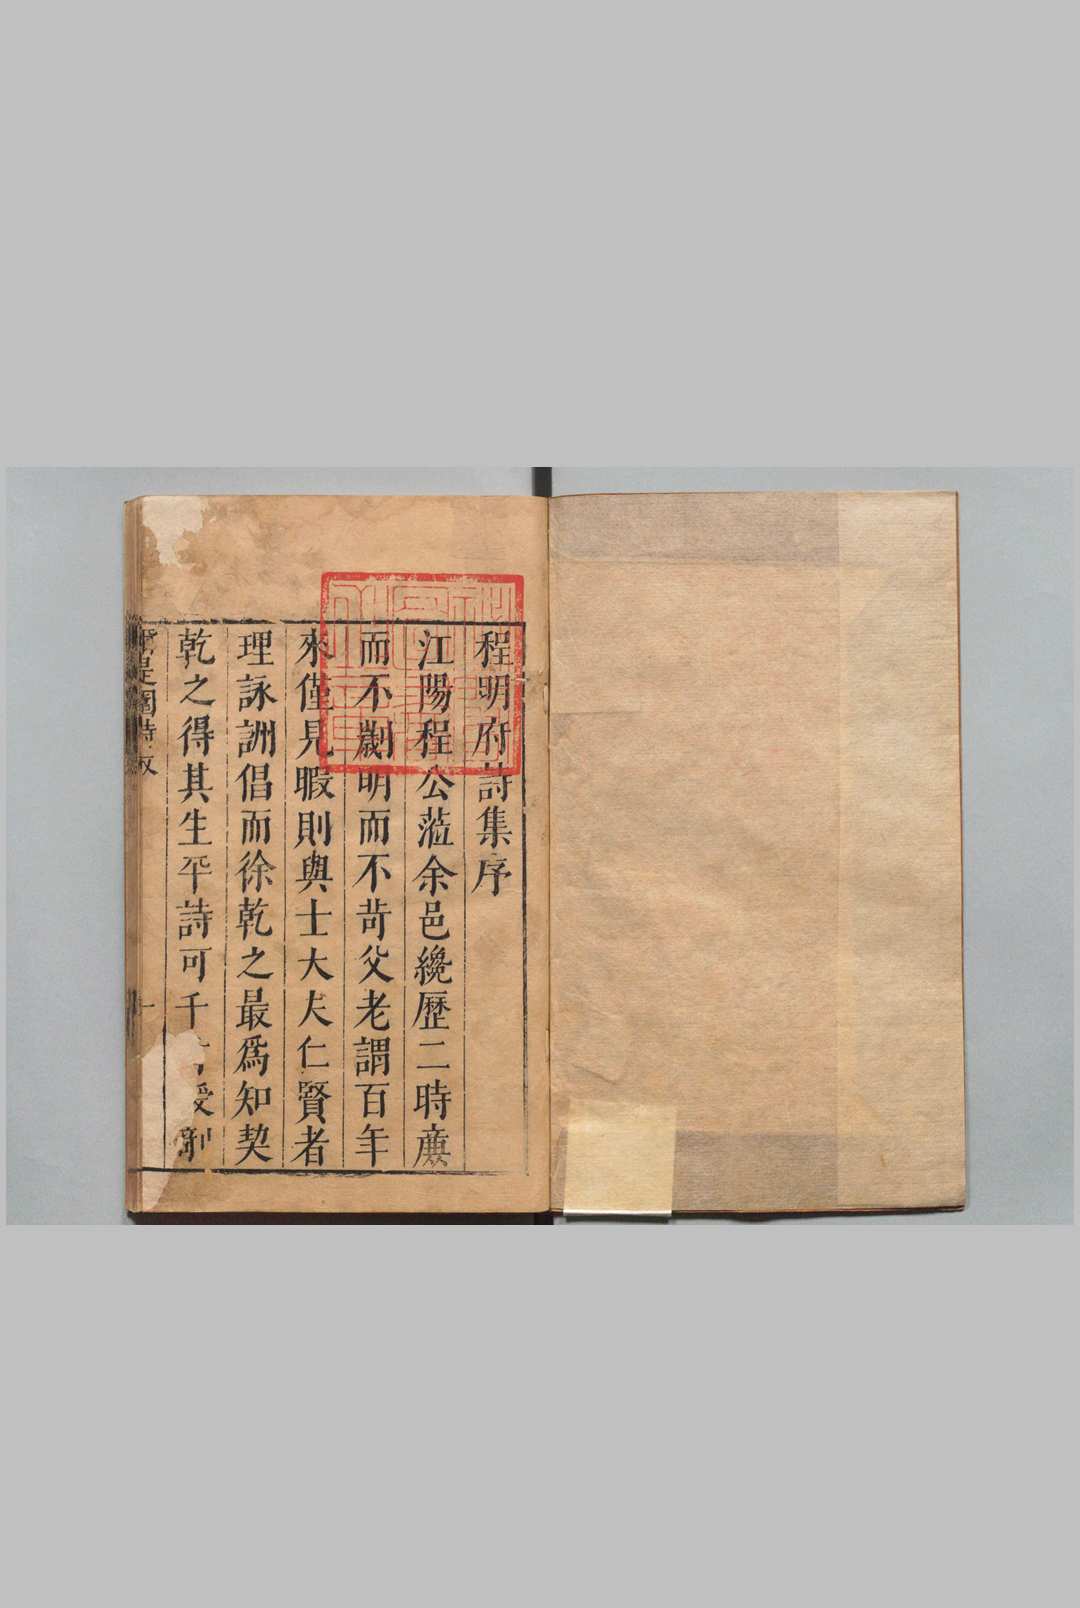 程明府詩集序
江陽程公蒞余邑纔歷二時亷
而不劌明而不苛父老謂百年
來僅見暇則與士大夫仁賢者
理詠詶倡而徐乾之最爲知契
乾之得其生平詩可千首授剞